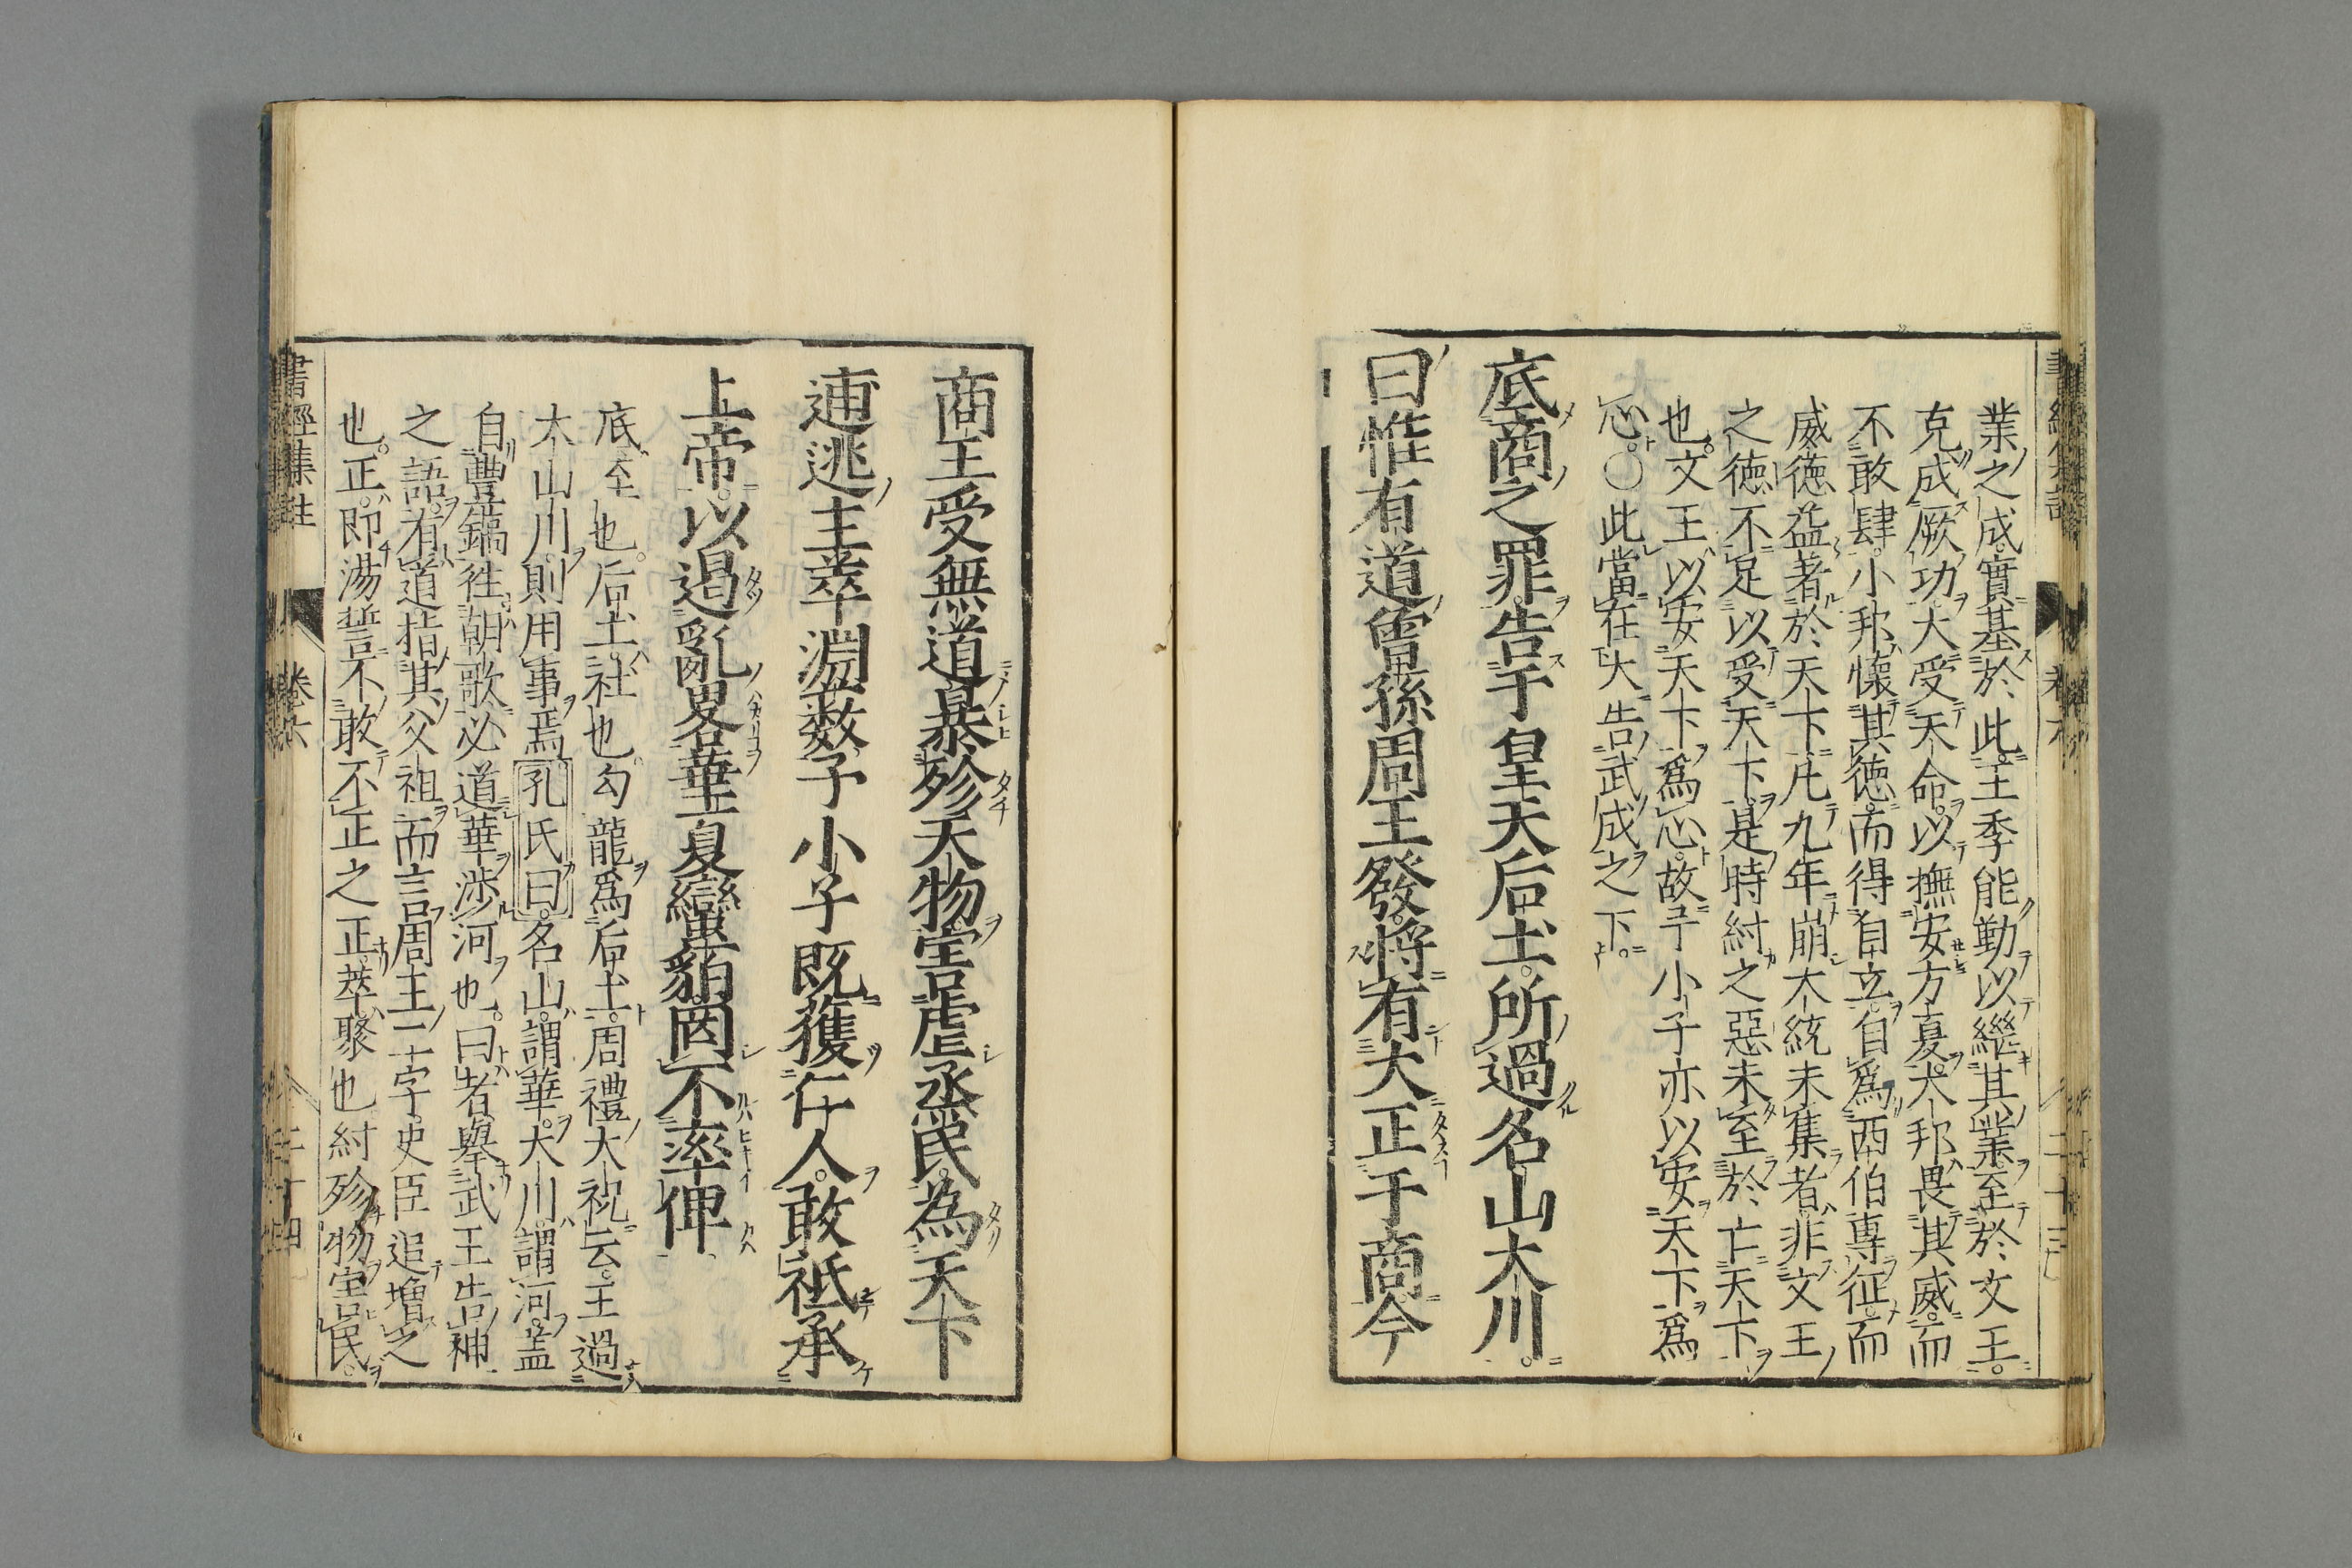 業之成。實基於此。王季能勤以繼其業。至於文王。
克成厥功。大受天命。以撫安方夏。大邦畏其威。而
不敢肆。小邦懷其徳。而得自立。自爲西伯專征。而
威徳益著於天下。凡九年崩。大統未集者。非文王
之徳不足以受天下。是時紂之惡未至於亡天下
也。文王以安天下爲心。故予小子亦以安天下爲
心。〇此當在大告武成之下。
底商之罪。告于皇天后土。所過名山大川。
曰惟有道曾孫周王發。將有大正于商。今
商王受無道。暴殄天物。害虐烝民。為天下
逋逃主。萃淵藪。予小子既獲仁人。敢祗承
上帝。以遏亂畧。華夏蠻貊。罔不率俾
底。至也。后土。社也。勾龍爲后土。周禮大祝云。王過
大山川。則用事焉。孔氏曰。名山。謂華。大川。謂河。蓋
自豐鎬往朝歌。必道華渉河也。曰者。舉武王告神
之語。有道。指其父祖而言。周王二字。史臣追増之
也。正。即湯誓不敢不正之正。萃。聚也。紂殄物害民。
書經集註
卷六
二十四